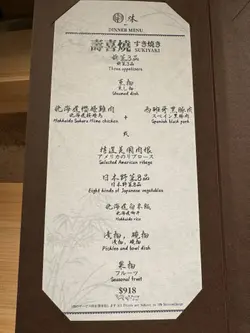 味
DINNER MENU
壽喜燒 すき焼き
SUKIYAKI
前菜3品
前菜3品
Three appetizers
蒸物
蒸し物
Steamed dish
北海道櫻姬雞肉 + 西班牙黑豚肉
北海道桜姫鶏 スペイン産黒豚肉
Hokkaido Sakura Hime chicken Spanish black pork
或
精選美國肉眼
アメリカのリブロース
Selected American ribeye
日本野菜8品
日本野菜8品
Eight kinds of Japanese vegetables
北海道白米飯
Hokkaido rice
漬物、碗物
漬物、碗物
Pickles and bowl dish
果物
フルーツ
Seasonal fruit
$918